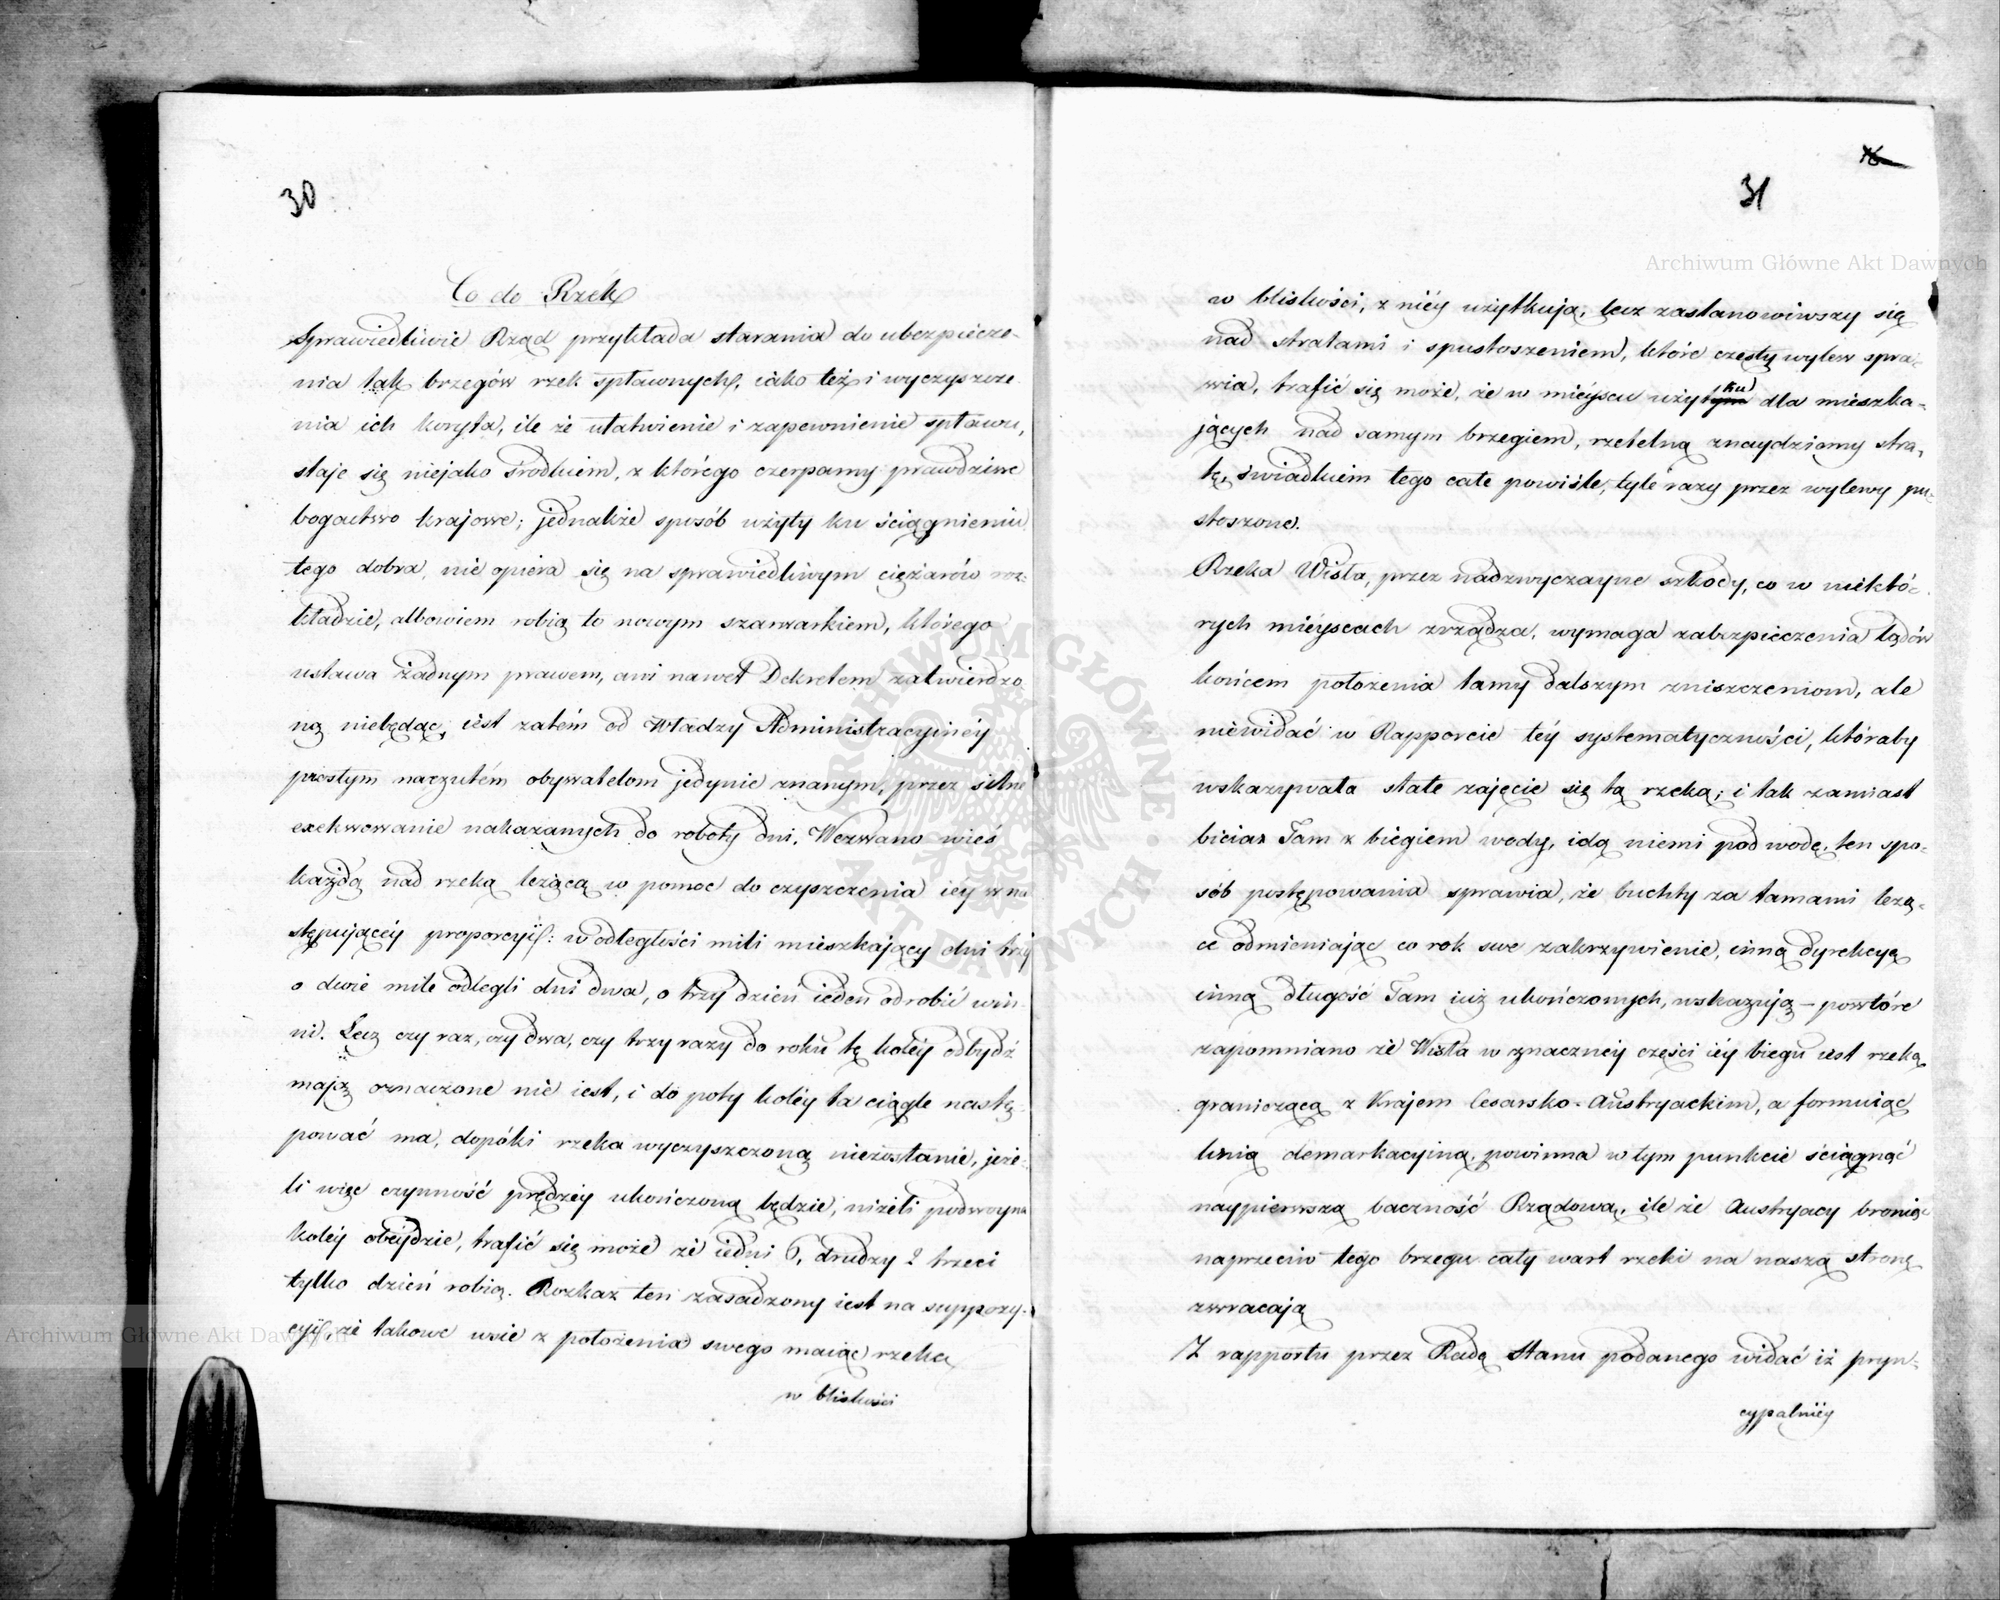 30
Co do Rzék
Sprawiedliwie Rząd przykłada starania do ubezpiecze-
nia tak brzegów rzek spławnych, iako też i wyczyszcze
nia ich koryta, ile że ułatwienie i zapewnienie spławu,
staje się niejako środkiem, z którego czerpamy prawdziwe
bogactwo krajowe; jednakże sposób użyty ku ściągnieniu
tego dobra, nie opiera się na sprawiedliwym ciężarów roz-
kładzie, albowiem robią to nowym szarwarkiem, którego
ustawa żadnym prawem, ani nawet Dekretem zatwierdzo
ną niebędąc, iest zatém od Władzy Administracyinéy
prostym naczutém obywatelom jedynie znanym, przez silne
exekwowanie nakazanych do roboty dni. Wezwano wieś
każdą nad rzeką leżącą w pomoc do czyszczenia iéy w na
stępuiącéy proporcyi: w odległości mili mieszkający dni trzy
o dwie mile odlegli dni dwa, o trzy dzień ieden odrobić win-
ni. Lecz czy raz, czy dwa, czy trzy razy do roku tę koléy odbydź
mają oznaczone nie iest, i do poty koléy ta ciągle nastę-
pować ma, dopóki rzeka wyczyszczoną niezostanie, jeże-
li więc czynność prędzéy ukończoną będzie, niżeli podwoyna
koléy obéydzie, trafić się może że iedni 6, drudzy 2 trzeci
tylko dzień robią. Rozkaz ten zasadzony iest na suppozy-
cyi, że takowe wsie z położenia swego maiąc rzekę
w bliskości
16
31
w bliskości, z niéy użytkują, lecz zastanowiwszy się
nad stratami i spustoszeniem, które częsty wylew spra-
wia, trafić się może, że w miéyscu użytku dla mieszka-
jących nad samym brzegiem, rzetelną znaydziemy stra-
tę, świadkiem tego całe powiśle, tyle razy przez wylewy pu-
stoszone.
Rzeka Wisła, przez nadzwyczayne szkody, co w niektó-
rych miéyscach zrządza, wymaga zabezpieczenia lądów
końcem położenia tamy dalszym zniszczeniom, ale
niewidać w Rapporcie téy systematyczności, któraby
wskazywała stałe zajęcie się tą rzeką; i tak zamiast
bicia Tam z biegiem wody, idą niemi pod wodę, ten spo-
sób postępowania sprawia, że buchty za tamami leżą-
ce odmieniając co rok swe zakrzywienie, inną dyrekcyą
inną długość Tam iuż ukończonych, wskazują – powtóre
zapomniano że Wisła w znaczney części iéy biegu iest rzeką
graniczącą z Krajem Cesarsko-Austryackim, a formuiąc
linią demarkacyiną, powinna w tym punkcie ściągnąć
naypierwszą baczność Rządową, ile że Austryacy broniąc
naprzeciw tego brzegu cały wart rzeki na naszą stronę
zwracają
Z rapportu przez Radę Stanu podanego widać iż pryn-
cypalniéy
Archiwum Główne Akt Dawnych
Archiwum Główne Akt Dawnych
ARCHIWUM GŁÓWNE AKT DAWNYCH